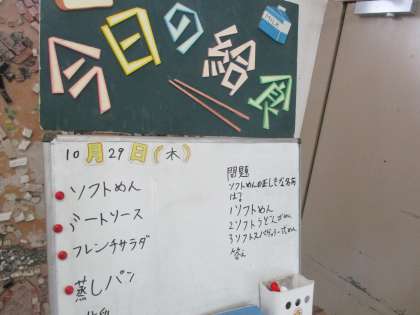 今日の給食
MILK
10月29日(木)
ソフトめん
ミートソース
フレンチサラダ
蒸しパン
問題
ソフトめんの正しきな名前
は?
1 ソフトめん
2 ソフトうどんめん
3 ソフトスパゲッティ式めん
答え